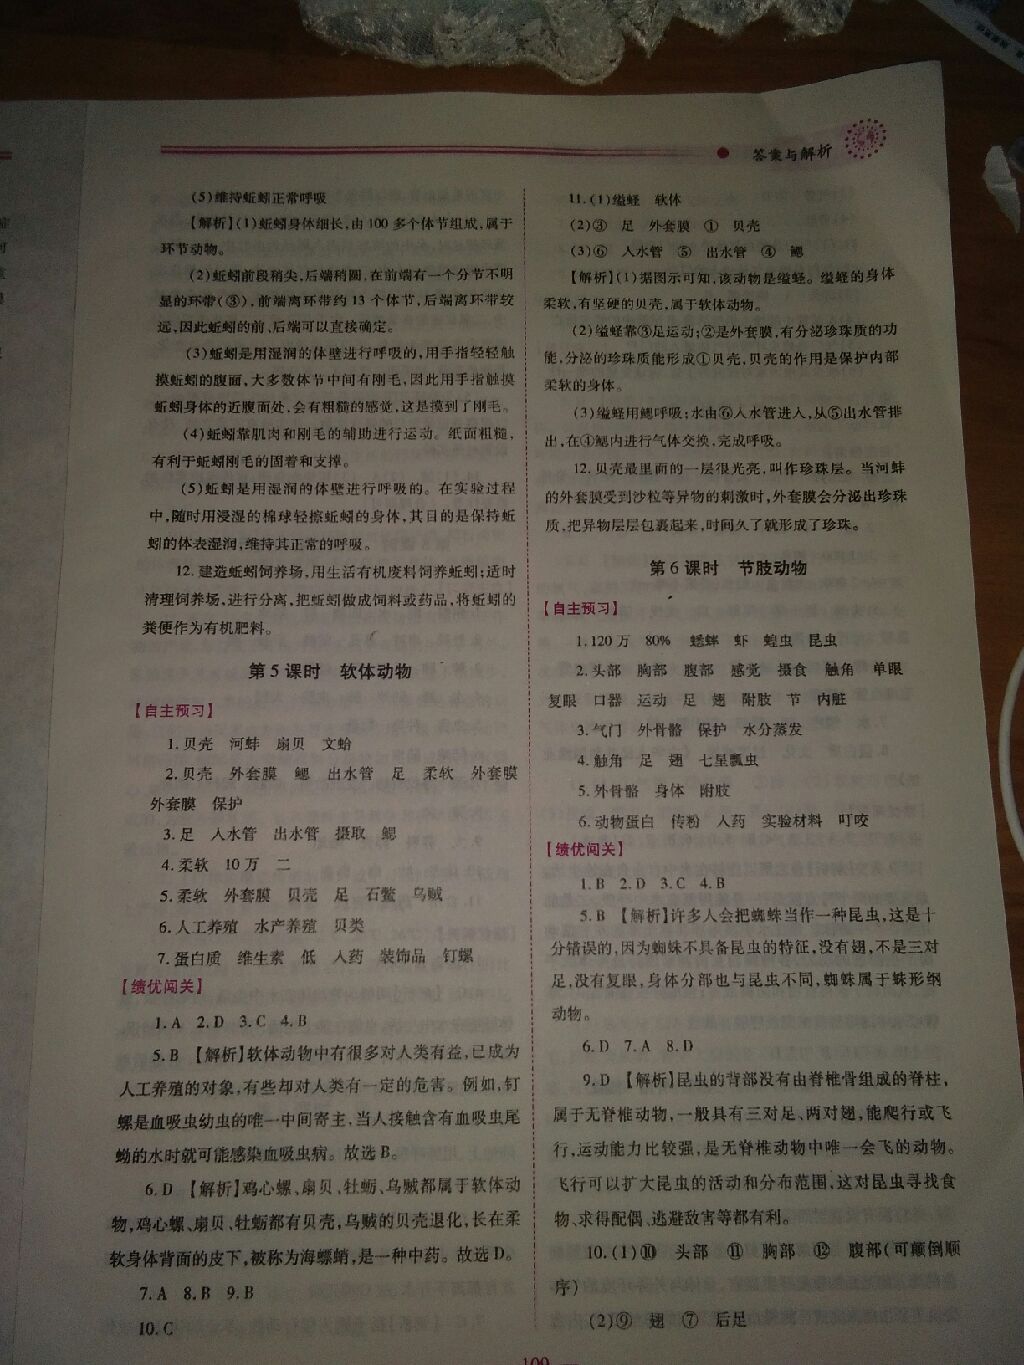 答案与解析
(5)维持蚯蚓正常呼吸
【解析】(1)蚯蚓身体细长,由100多个体节组成,属于
环节动物。
(2)蚯蚓前段稍尖,后端稍圆,在前端有一个分节不明
显的环带(③),前端离环带约13个体节,后端离环带较
远,因此蚯蚓的前、后端可以直接确定。
(3)蚯蚓是用湿润的体壁进行呼吸的,用手指轻轻触
摸蚯蚓的腹面,大多数体节中间有刚毛,因此用手指触摸
蚯蚓身体的近腹面处,会有粗糙的感觉,这是摸到了刚毛。
(4)蚯蚓靠肌肉和刚毛的辅助进行运动。纸面粗糙,
有利于蚯蚓刚毛的固着和支撑。
(5)蚯蚓是用湿润的体壁进行呼吸的。在实验过程
中,随时用浸湿的棉球轻擦蚯蚓的身体,其目的是保持蚯
蚓的体表湿润,维持其正常的呼吸。
12.建造蚯蚓饲养场,用生活有机废料饲养蚯蚓;适时
清理饲养场,进行分离,把蚯蚓做成饲料或药品,将蚯蚓的
粪便作为有机肥料。
第5课时 软体动物
【自主预习】
1.贝壳 河蚌 扇贝 文蛤
2.贝壳 外套膜 鳃 出水管 足 柔软 外套膜
外套膜 保护
3.足 入水管 出水管 摄取 鳃
4.柔软 10万 二
5.柔软 外套膜 贝壳 足 石鳖 乌贼
6.人工养殖 水产养殖 贝类
7.蛋白质 维生素 低 入药 装饰品 钉螺
【绩优闯关】
1.A 2.D 3.C 4.B
5.B 【解析】软体动物中有很多对人类有益,已成为
人工养殖的对象,有些却对人类有一定的危害。例如,钉
螺是血吸虫幼虫的唯一中间寄主,当人接触含有血吸虫尾
蚴的水时就可能感染血吸虫病。故选B。
6.D 【解析】鸡心螺、扇贝、牡蛎、乌贼都属于软体动
物,鸡心螺、扇贝、牡蛎都有贝壳,乌贼的贝壳退化,长在柔
软身体背面的皮下,被称为海螵蛸,是一种中药。故选D。
7.A 8.B 9.B
10.C
11.(1)缢蛏 软体
(2)③ 足 外套膜 ① 贝壳
(3)⑥ 入水管 ⑤ 出水管 ④ 鳃
【解析】(1)据图示可知,该动物是缢蛏。缢蛏的身体
柔软,有坚硬的贝壳,属于软体动物。
(2)缢蛏靠③足运动;②是外套膜,有分泌珍珠质的功
能,分泌的珍珠质能形成①贝壳,贝壳的作用是保护内部
柔软的身体。
(3)缢蛏用鳃呼吸;水由⑥入水管进入,从⑤出水管排
出,在④鳃内进行气体交换,完成呼吸。
12.贝壳最里面的一层很光亮,叫作珍珠层。当河蚌
的外套膜受到沙粒等异物的刺激时,外套膜会分泌出珍珠
质,把异物层层包裹起来,时间久了就形成了珍珠。
第6课时 节肢动物
【自主预习】
1.120万 80% 蟋蟀 虾 蝗虫 昆虫
2.头部 胸部 腹部 感觉 摄食 触角 单眼
复眼 口器 运动 足 翅 附肢 节 内脏
3.气门 外骨骼 保护 水分蒸发
4.触角 足 翅 七星瓢虫
5.外骨骼 身体 附肢
6.动物蛋白 传粉 入药 实验材料 叮咬
【绩优闯关】
1.B 2.D 3.C 4.B
5.B 【解析】许多人会把蜘蛛当作一种昆虫,这是十
分错误的,因为蜘蛛不具备昆虫的特征,没有翅,不是三对
足,没有复眼,身体分部也与昆虫不同,蜘蛛属于蛛形纲
动物。
6.D 7.A 8.D
9.D 【解析】昆虫的背部没有由脊椎骨组成的脊柱,
属于无脊椎动物,一般具有三对足、两对翅,能爬行或飞
行,运动能力比较强,是无脊椎动物中唯一会飞的动物。
飞行可以扩大昆虫的活动和分布范围,这对昆虫寻找食
物、求得配偶、逃避敌害等都有利。
10.(1)⑩ 头部 ⑪ 胸部 ⑫ 腹部(可颠倒顺
序)
(2)⑨ 翅 ⑦ 后足
109